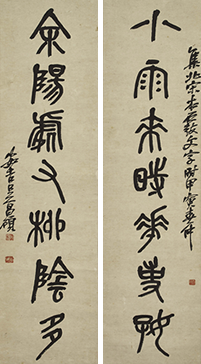 集北宋本石鼓文字時甲寅
小雨來時華事好
余陽處又柳陰多
安吉吳昌碩